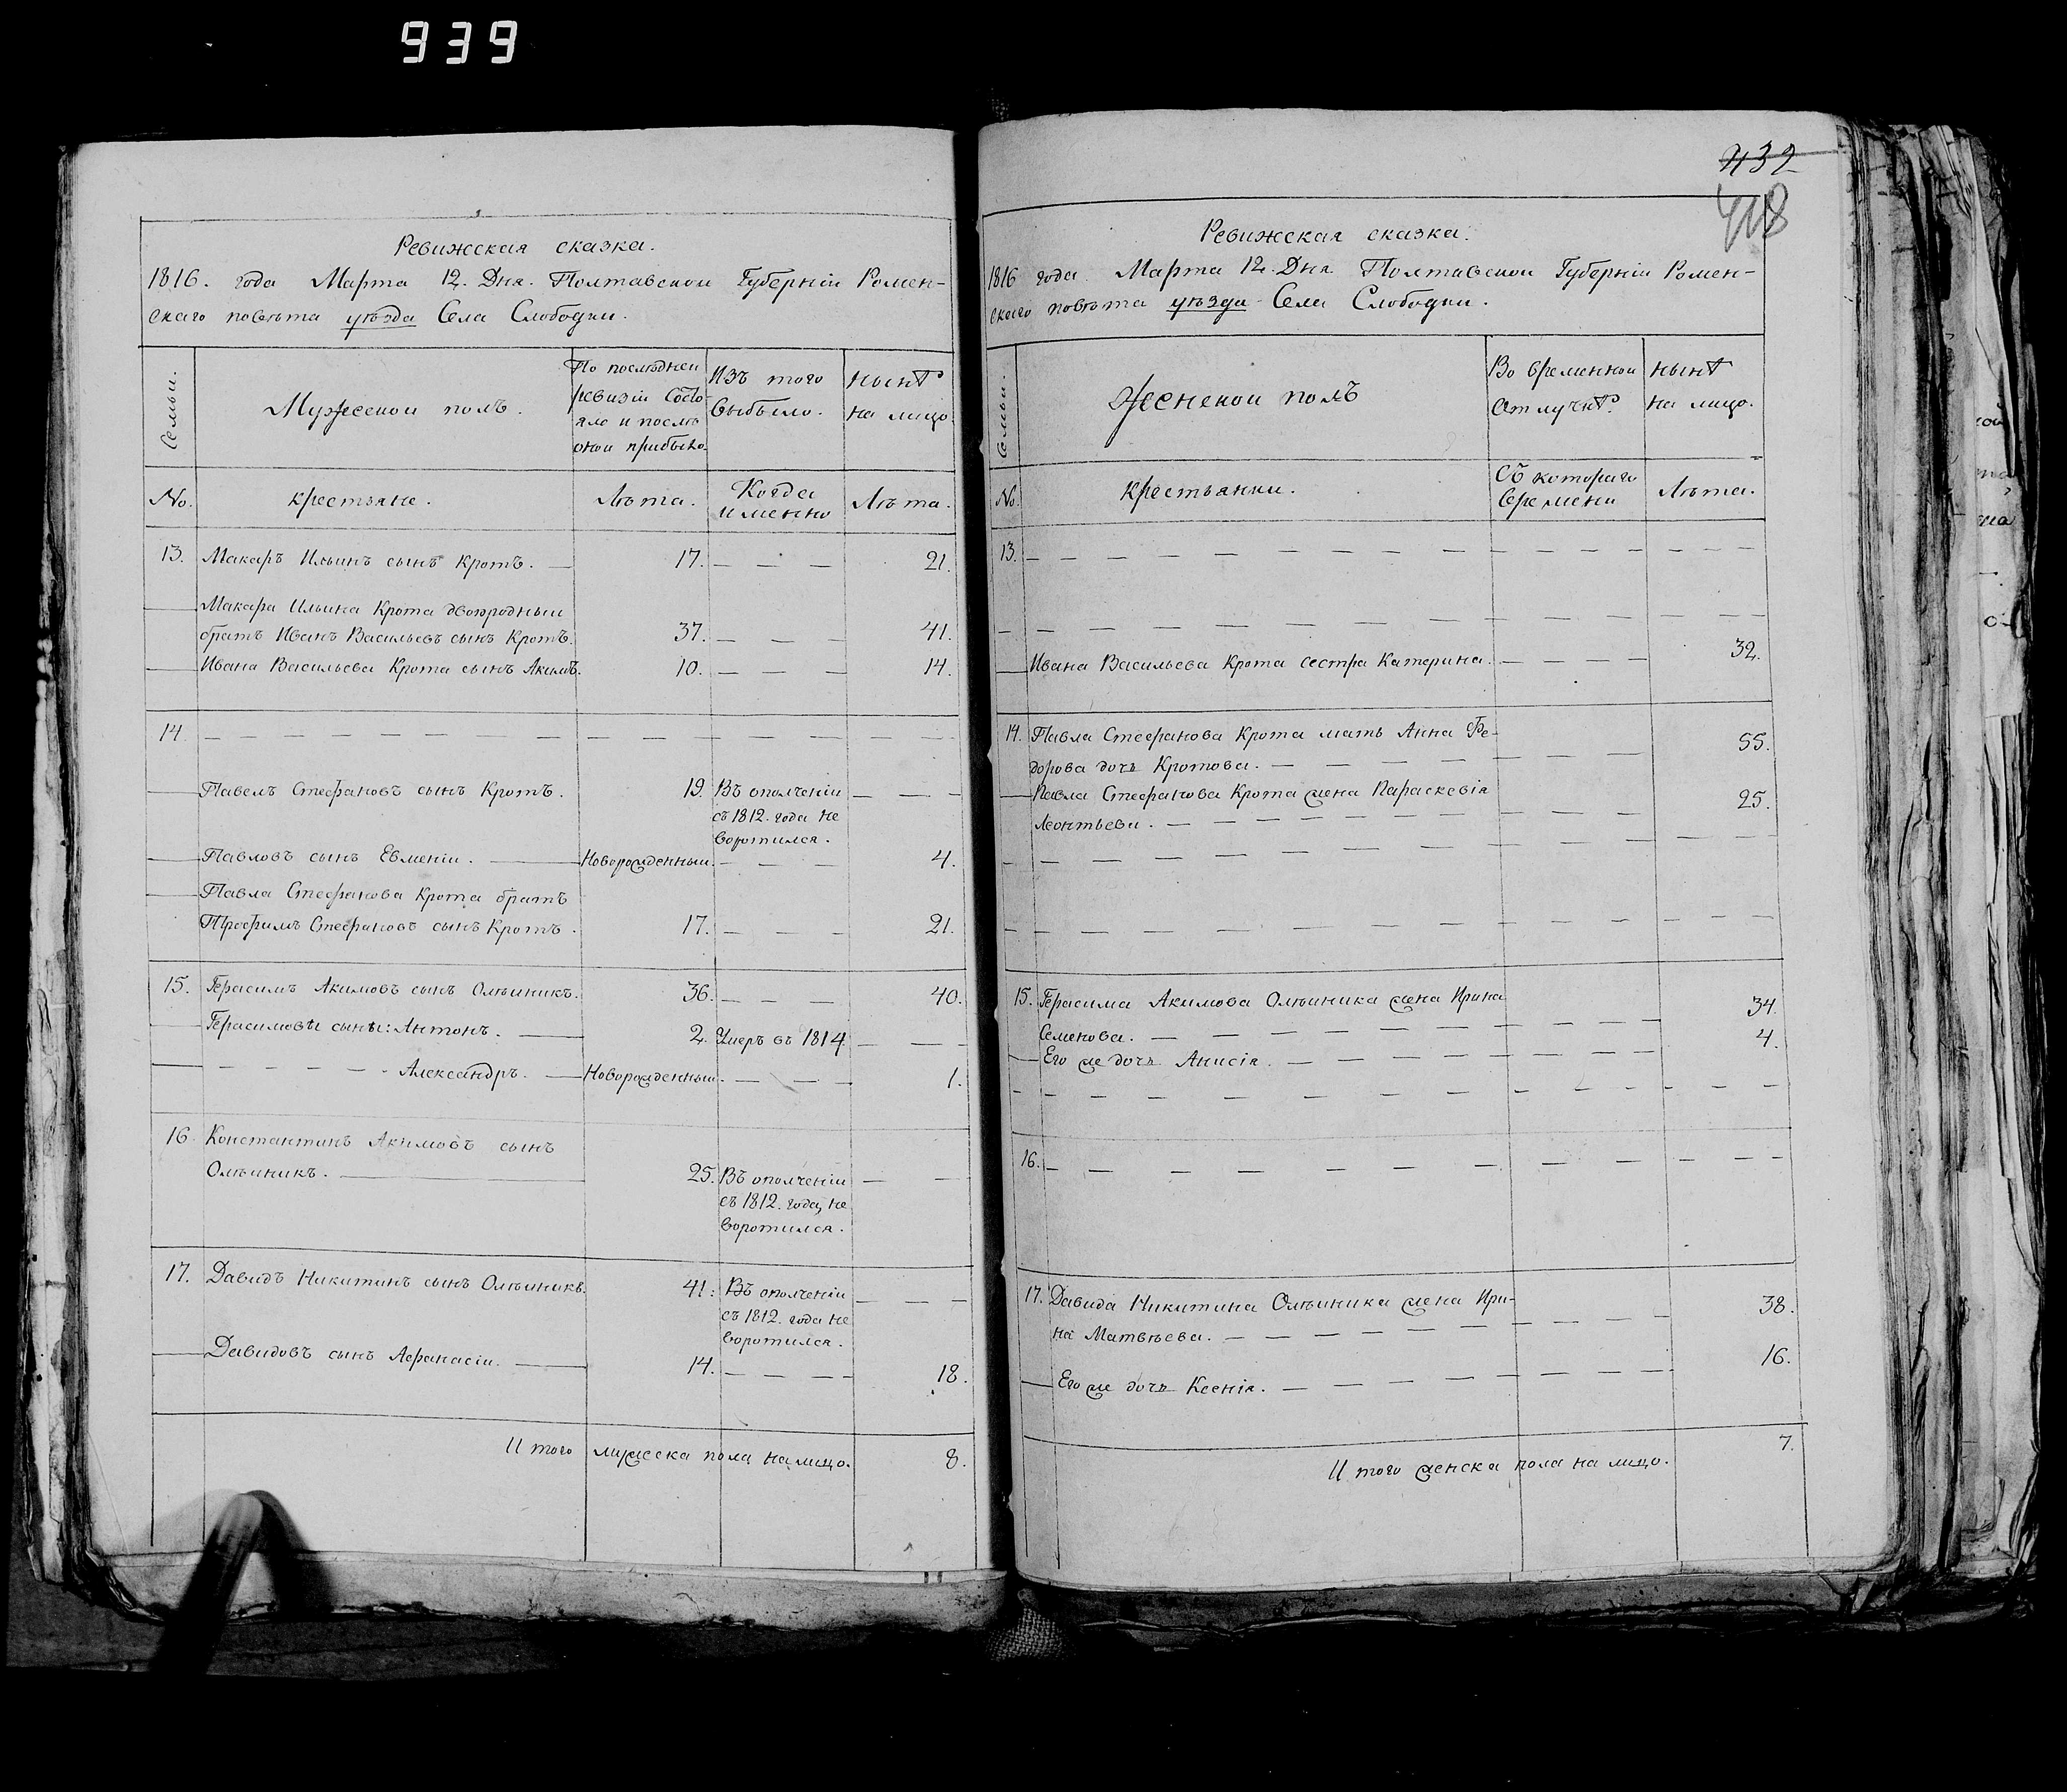 939
Ревижская сказка.
1816. года Марта 12. Дня. Полтавской Губерніи Ромен-
скаго повѣта уѣзда Села Слободки.
Семьи.
Мужескои полъ.
По послѣдней
ревизіи Состо-
яло и послѣ
онои прибыло.
Изъ того
выбыло.
нынѣ
на лицо.
No.
крестьяне.
Лѣта.
Когда
именно
Лѣта.
13. Макаръ Ильинъ сынъ Кротъ. 17. 21.
Макара Ильина Крота двоюродныи
братъ Иванъ Васильевъ сынъ Кротъ. 37. 41.
Ивана Васильева Крота сынъ Акимъ. 10. 14.
14.
Павелъ Стефановъ сынъ Кротъ. 19. Въ ополченіи
съ 1812. года не
воротился.
Павловъ сынъ Евменіи. Новорожденныи. 4.
Павла Стефанова Крота братъ
Трофимъ Стефановъ сынъ Кротъ. 17. 21.
15. Герасимъ Акимовъ сынъ Олѣиникъ. 36. 40.
Герасимовы сыны: Антонъ. 2. Умеръ въ 1814.
Александръ. Новорожденныи. 1.
16. Константинъ Акимовъ сынъ
Олѣиникъ. 25. Въ ополченіи
съ 1812. года, не
воротился.
17. Давидъ Никитинъ сынъ Олѣиникъ. 41. Въ ополченіи
съ 1812. года не
воротился.
Давидовъ сынъ Афанасіи. 14. 18.
И того мужеска пола на лицо. 8.
432
418
Ревижская сказка.
1816 года Марта 12. Дня. Полтавскои Губерніи Ромен-
скаго повѣта уѣзда Села Слободки.
Семьи.
Женскои полъ
Во временнои
отлучкѣ.
нынѣ
на лицо.
No.
Крестьянки.
Съ котораго
времени
Лѣта.
13.
Ивана Васильева Крота сестра Катерина. 32.
14. Павла Стефанова Крота мать Анна Фе-
дорова дочь Кротова. 55.
Павла Стефанова Крота жена Параскевія
Леонтьева. 25.
15. Герасима Акимова Олѣиника жена Ирина
Семенова. 34.
Его же дочь Анисія. 4.
16.
17. Давида Никитина Олѣиника жена Ири-
на Матвѣева. 38.
Его же дочь Ксенія. 16.
И того женска пола на лицо. 7.